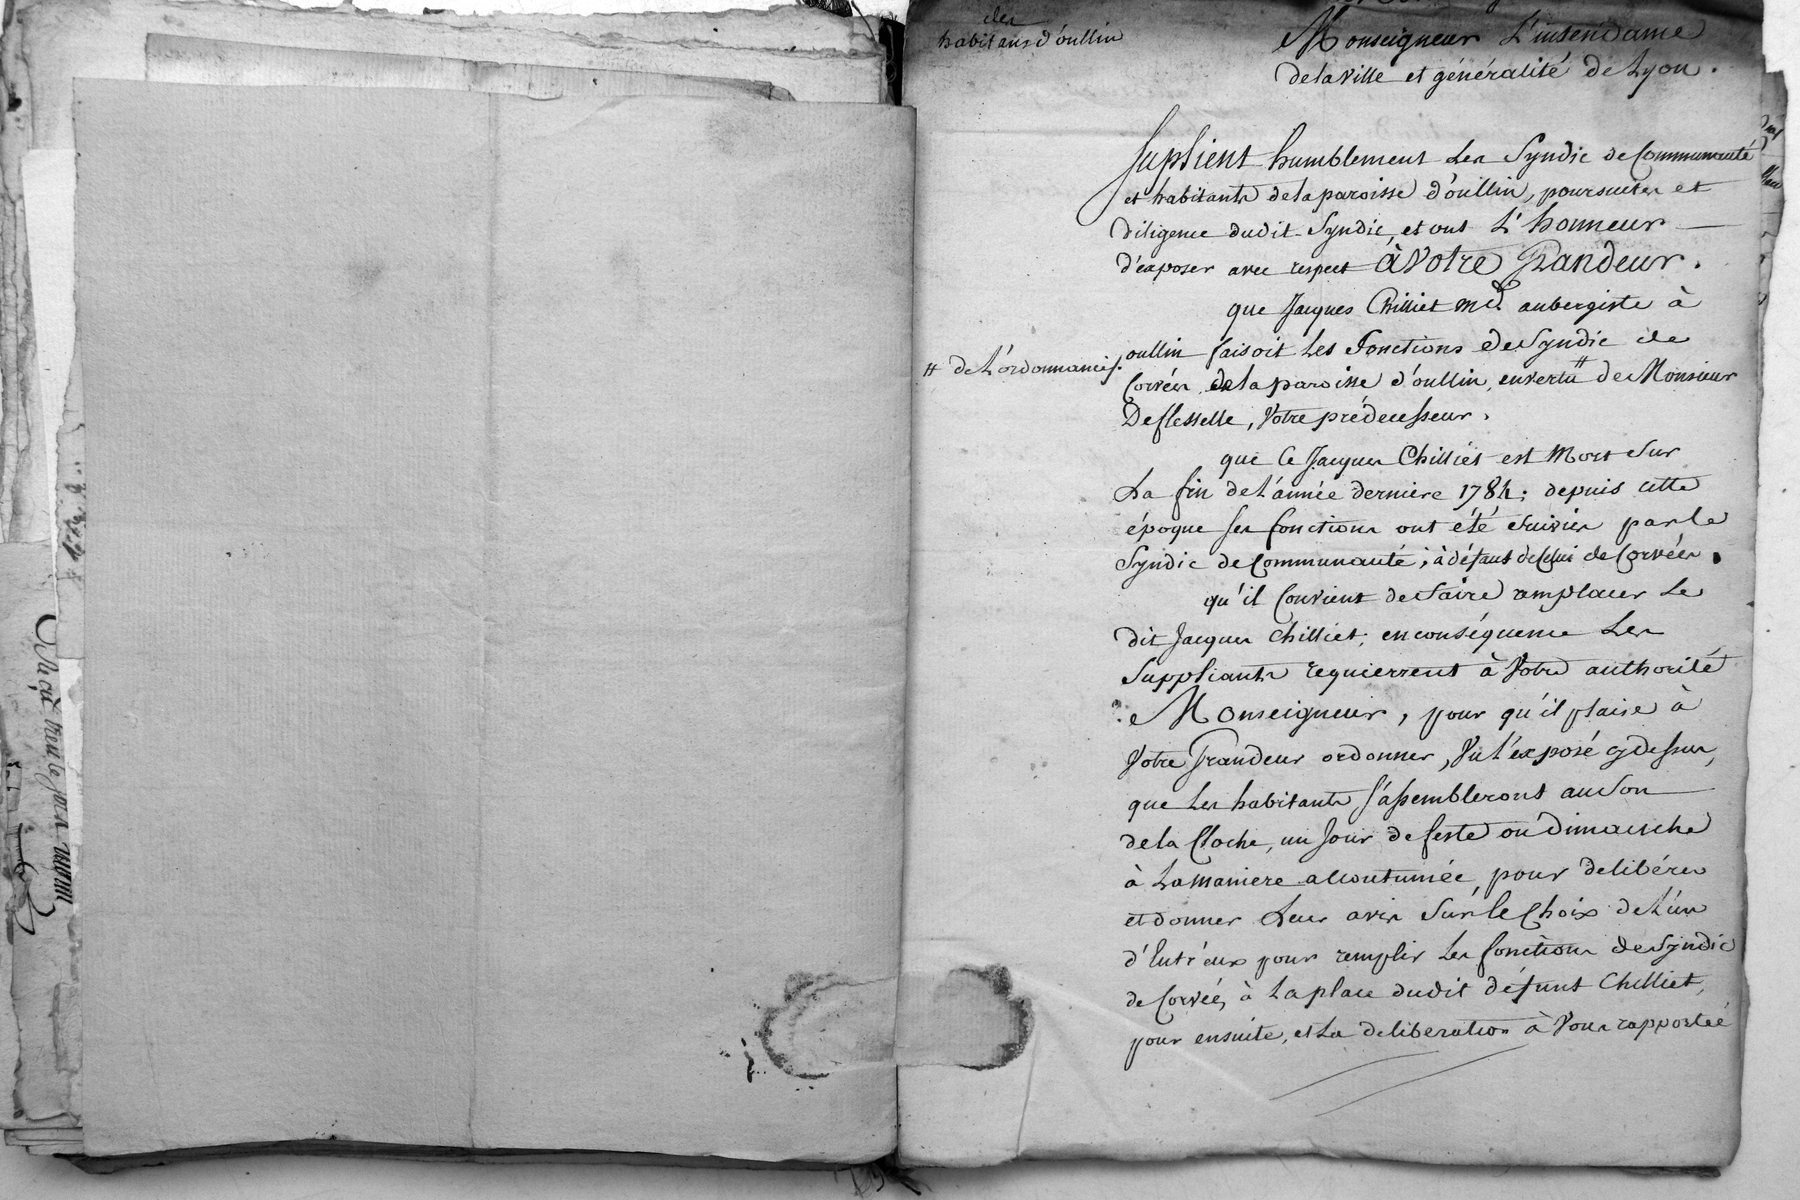 des
habitans d'oullin
Monseigneur L'intendame
de la ville et généralité de Lyon.
Suplient humblement Les Syndic de Communauté
et habitants de la paroisse d'oullin, poursuites et
diligence dudit Syndic, et ont L'honneur
d'exposer avec respect à Votre Grandeur.
que Jacques Chilliet md. aubergiste à
oullin faisoit Les fonctions de Syndic de
Corvées de la paroisse d'oullin, en vertu # de Monsieur
# de L'ordonnance
De flesselle, Votre prédecesseur.
que Ce Jacques Chilliet est Mort Sur
La fin de l'année derniere 1784; depuis cette
époque ses fonctions ont été suivies par le
Syndic de Communauté, à défaut de Celui de Corvées.
qu'il Convient de faire remplacer Le
dit Jacques Chilliet; en conséquence Les
Suppliants requierrent à Votre authorité
Monseigneur, pour qu'il plaise à
Votre Grandeur ordonner, Vu l'exposé cy dessus,
que Les habitants s'assembleront au Son
de la Cloche, un Jour de feste ou dimanche
à La maniere accoutumée, pour delibérer
et donner Leur avis Sur le Choix de L'un
d'Entr'eux pour remplir Les fonctions de Syndic
de Corvées, à La place dudit défunt Chilliet,
pour ensuite, et La deliberation à Vous rapportée